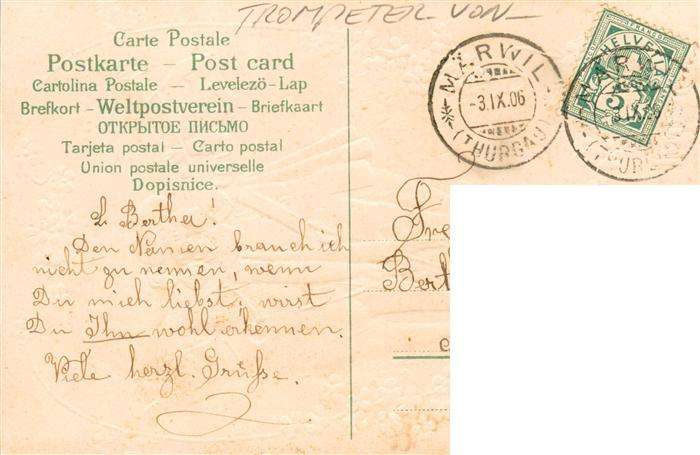 TROMPETER VON
Carte Postale
Postkarte — Post card
Cartolina Postale — Levelező-Lap
Brefkort - Weltpostverein - Briefkaart
ОТКРЫТОЕ ПИСЬМО
Tarjeta postal — Carto postal
Union postale universelle
Dopisnice.
L. Bertha!
Den Namen brauch ich
nicht zu nennen, wenn
Du mich liebst, wirst
Du Ihn wohl erkennen.
Viele herzl. Grüsse.
MÄRWIL
-3.IX.06
(THURGAU)
HELVETIA
5
Fre
Berth